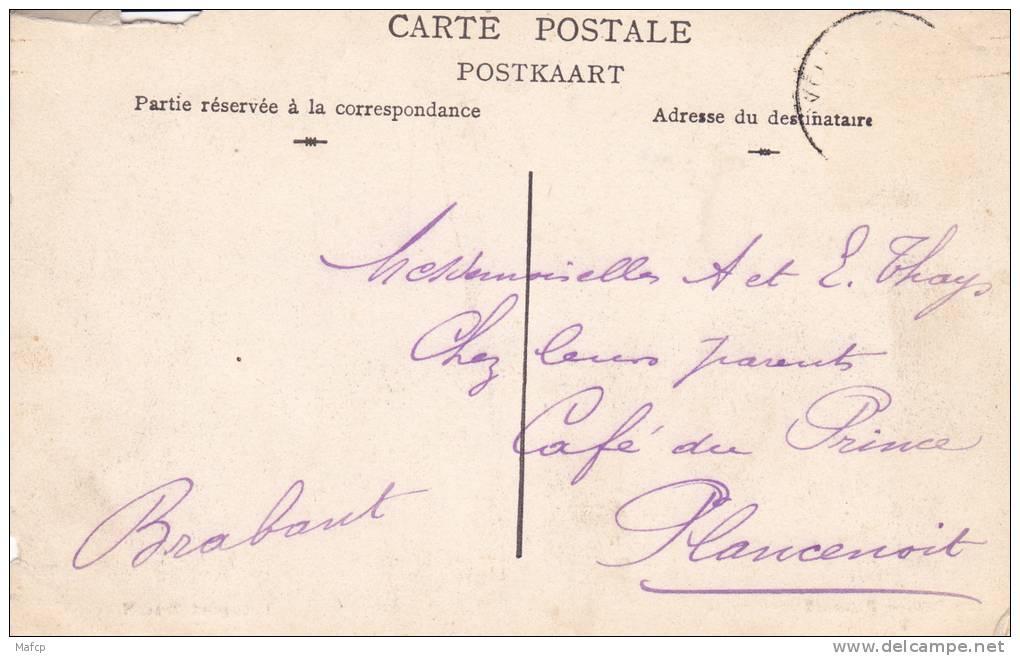 CARTE POSTALE
POSTKAART
Partie réservée à la correspondance
Adresse du destinataire
Mesdemoiselles A et E. Thays
Chez leurs parents
Café du Prince
Plancenoit
Brabant
Mafcp
delcampe.net